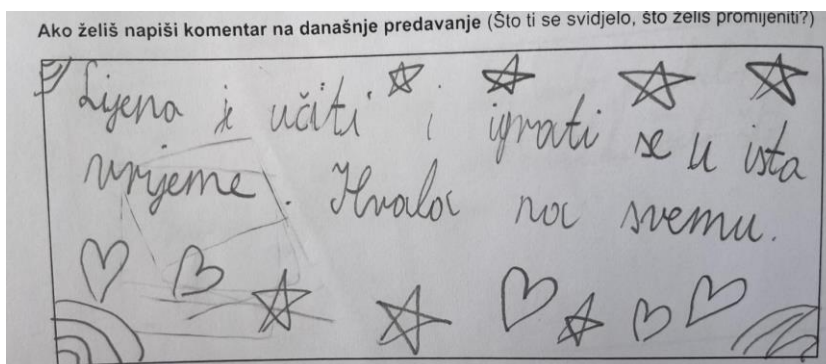 Ako želiš napiši komentar na današnje predavanje (Što ti se svidjelo, što želiš promijeniti?)
Lijena je učiti i igrati se u ista
vrijeme. Hvala na svemu.